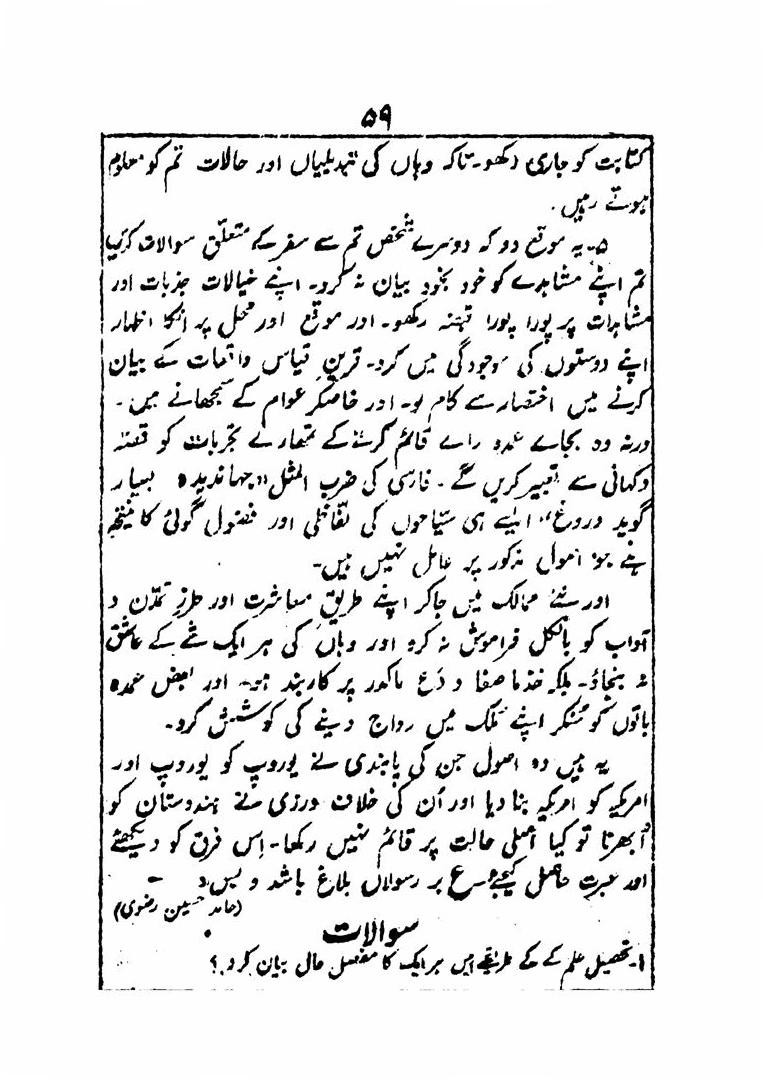 ۵۹
کتابت کو جاری رکھو۔ تاکہ وہاں کی تبدیلیاں اور حالات تم کو معلوم
ہوتے رہیں۔
۵۔ یہ موقع دو کہ دوسرے شخص تم سے سفر کے متعلّق سوالات کریں
تم اپنے مشاہدے کو خود بخود بیان نہ کرو۔ اپنے خیالات جذبات اور
مشاہدات پر پورا پورا قبضہ رکھو۔ اور موقع اور محل پر انکا اظہار
اپنے دوستوں کی موجودگی میں کرو۔ قرینِ قیاس واقعات کے بیان
کرنے میں اختصار سے کام لو۔ اور خاصکر عوام کے سمجھانے میں۔
ورنہ وہ بجاے عمدہ راے قائم کرنے کے تمھارے تجربات کو قصّہ
و کہانی سے تعبیر کریں گے۔ فارسی کی ضرب المثل "جہاندیدہ بسیار
گوید دروغ" ایسے ہی سیّاحوں کی لفّاظی اور فضول گوئی کا نتیجہ
ہے جو اصول مذکور پر عامل نہیں ہیں۔
اور نئے ممالک میں جاکر اپنے طریقِ معاشرت اور طرزِ تمدّن و
آداب کو بالکل فراموش نہ کرو اور وہاں کی ہر ایک شے کے عاشق
نہ بنجاؤ۔ بلکہ خذ ما صفا و دَع ماکدر پر کاربند ہو۔ اور بعض عمدہ
باتوں کو سُنکر اپنے مُلک میں رواج دینے کی کوشش کرو۔
یہ ہیں وہ اصول جن کی پابندی نے یوروپ کو یوروپ اور
امریکہ کو امریکہ بنا دیا اور اُن کی خلاف ورزی نے ہندوستان کو
اُبھرنا تو کیا اصلی حالت پر قائم نہیں رکھا۔ اِس فرق کو دیکھئے
اور عبرت حاصل کیجئے ع بر رسولاں بلاغ باشد و بس
(حامد حسین رضوی)
سوالات
۱۔ تحصیل علم کے کے طریقے ہیں ہر ایک کا مفصل حال بیان کرو؟